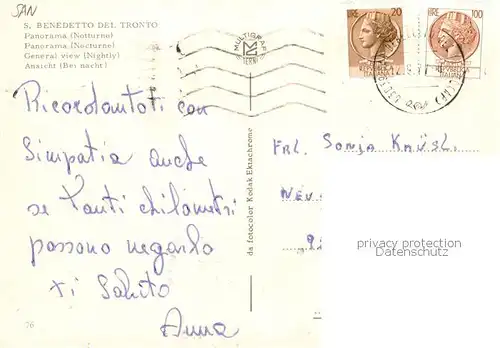 SAN
S. BENEDETTO DEL TRONTO
Panorama (Notturno)
Panorama (Nocturne)
General view (Nightly)
Ansicht (Bei nacht)
MULTIGRAF
LIRE 20
LIRE 100
Ricordantoti con
Simpatia anche
se tanti chilometri
possono negarlo
ti Saluto
Anna
da fotocolor Kodak Ektachrome
Frl. Sonja
Neu
privacy protection
Datenschutz
76